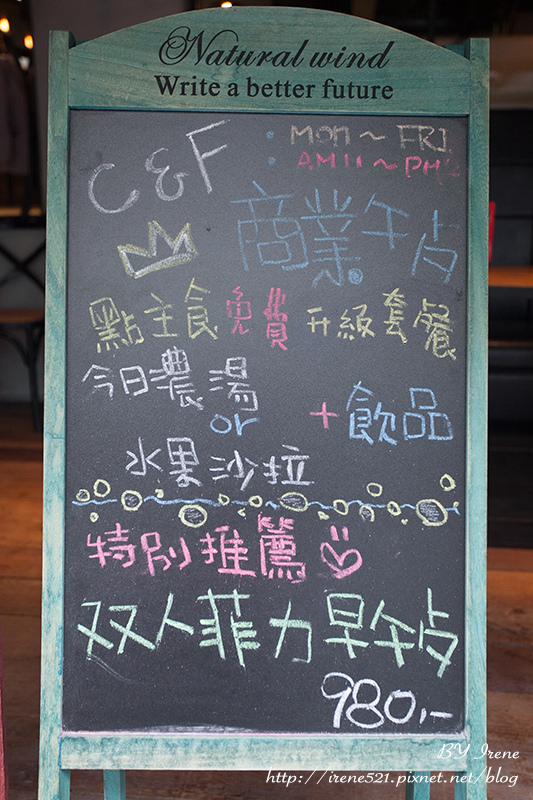 Natural wind
Write a better future
C&F
: MON ~ FRI
: AM11 ~ PM
商業午点
點主食免費升級套餐
今日濃湯
or
水果沙拉
+ 飲品
特別推薦
双人菲力早午点
980.-
BY Irene
http://irene521.pixnet.net/blog